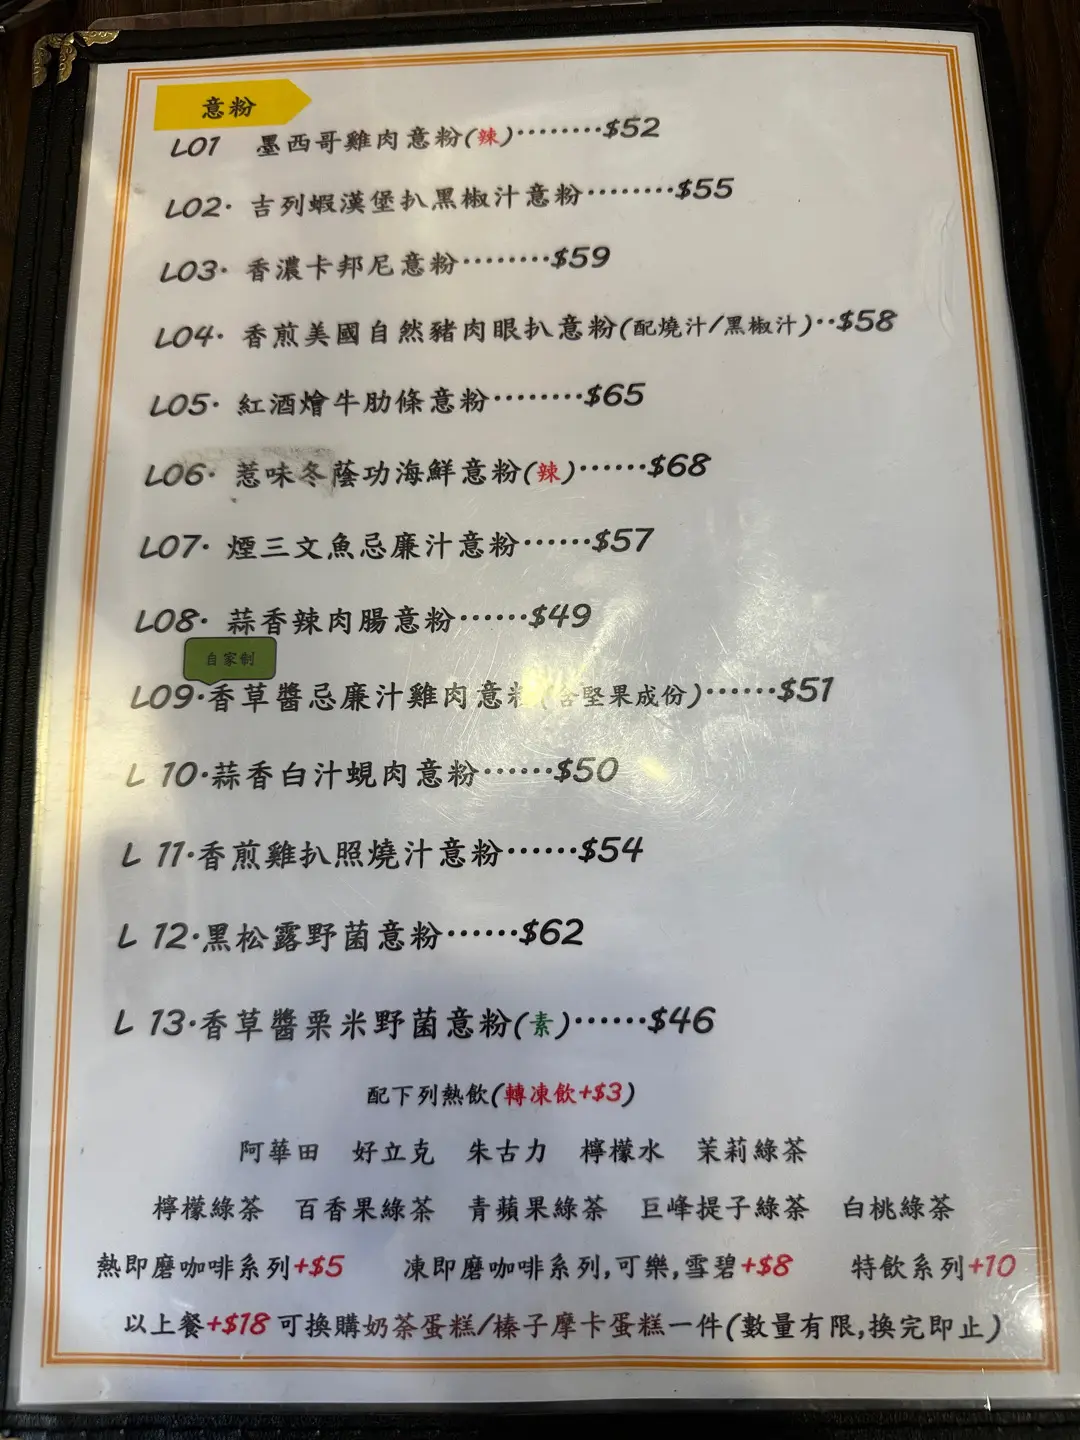 意粉
L01 墨西哥雞肉意粉(辣)………$52
L02· 吉列蝦漢堡扒黑椒汁意粉………$55
L03· 香濃卡邦尼意粉………$59
L04· 香煎美國自然豬肉眼扒意粉(配燒汁/黑椒汁)··$58
L05· 紅酒燴牛肋條意粉………$65
L06· 惹味冬蔭功海鮮意粉(辣)……$68
L07· 煙三文魚忌廉汁意粉……$57
L08· 蒜香辣肉腸意粉……$49
自家制
L09·香草醬忌廉汁雞肉意粉(含堅果成份)……$51
L 10·蒜香白汁蜆肉意粉……$50
L 11·香煎雞扒照燒汁意粉……$54
L 12·黑松露野菌意粉……$62
L 13·香草醬栗米野菌意粉(素)……$46
配下列熱飲(轉凍飲+$3)
阿華田 好立克 朱古力 檸檬水 茉莉綠茶
檸檬綠茶 百香果綠茶 青蘋果綠茶 巨峰提子綠茶 白桃綠茶
熱即磨咖啡系列+$5 凍即磨咖啡系列,可樂,雪碧+$8 特飲系列+10
以上餐+$18 可換購奶茶蛋糕/榛子摩卡蛋糕一件(數量有限,換完即止)